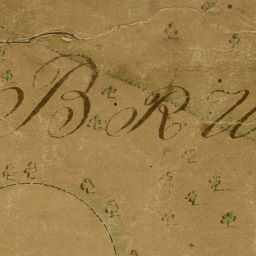 B R U